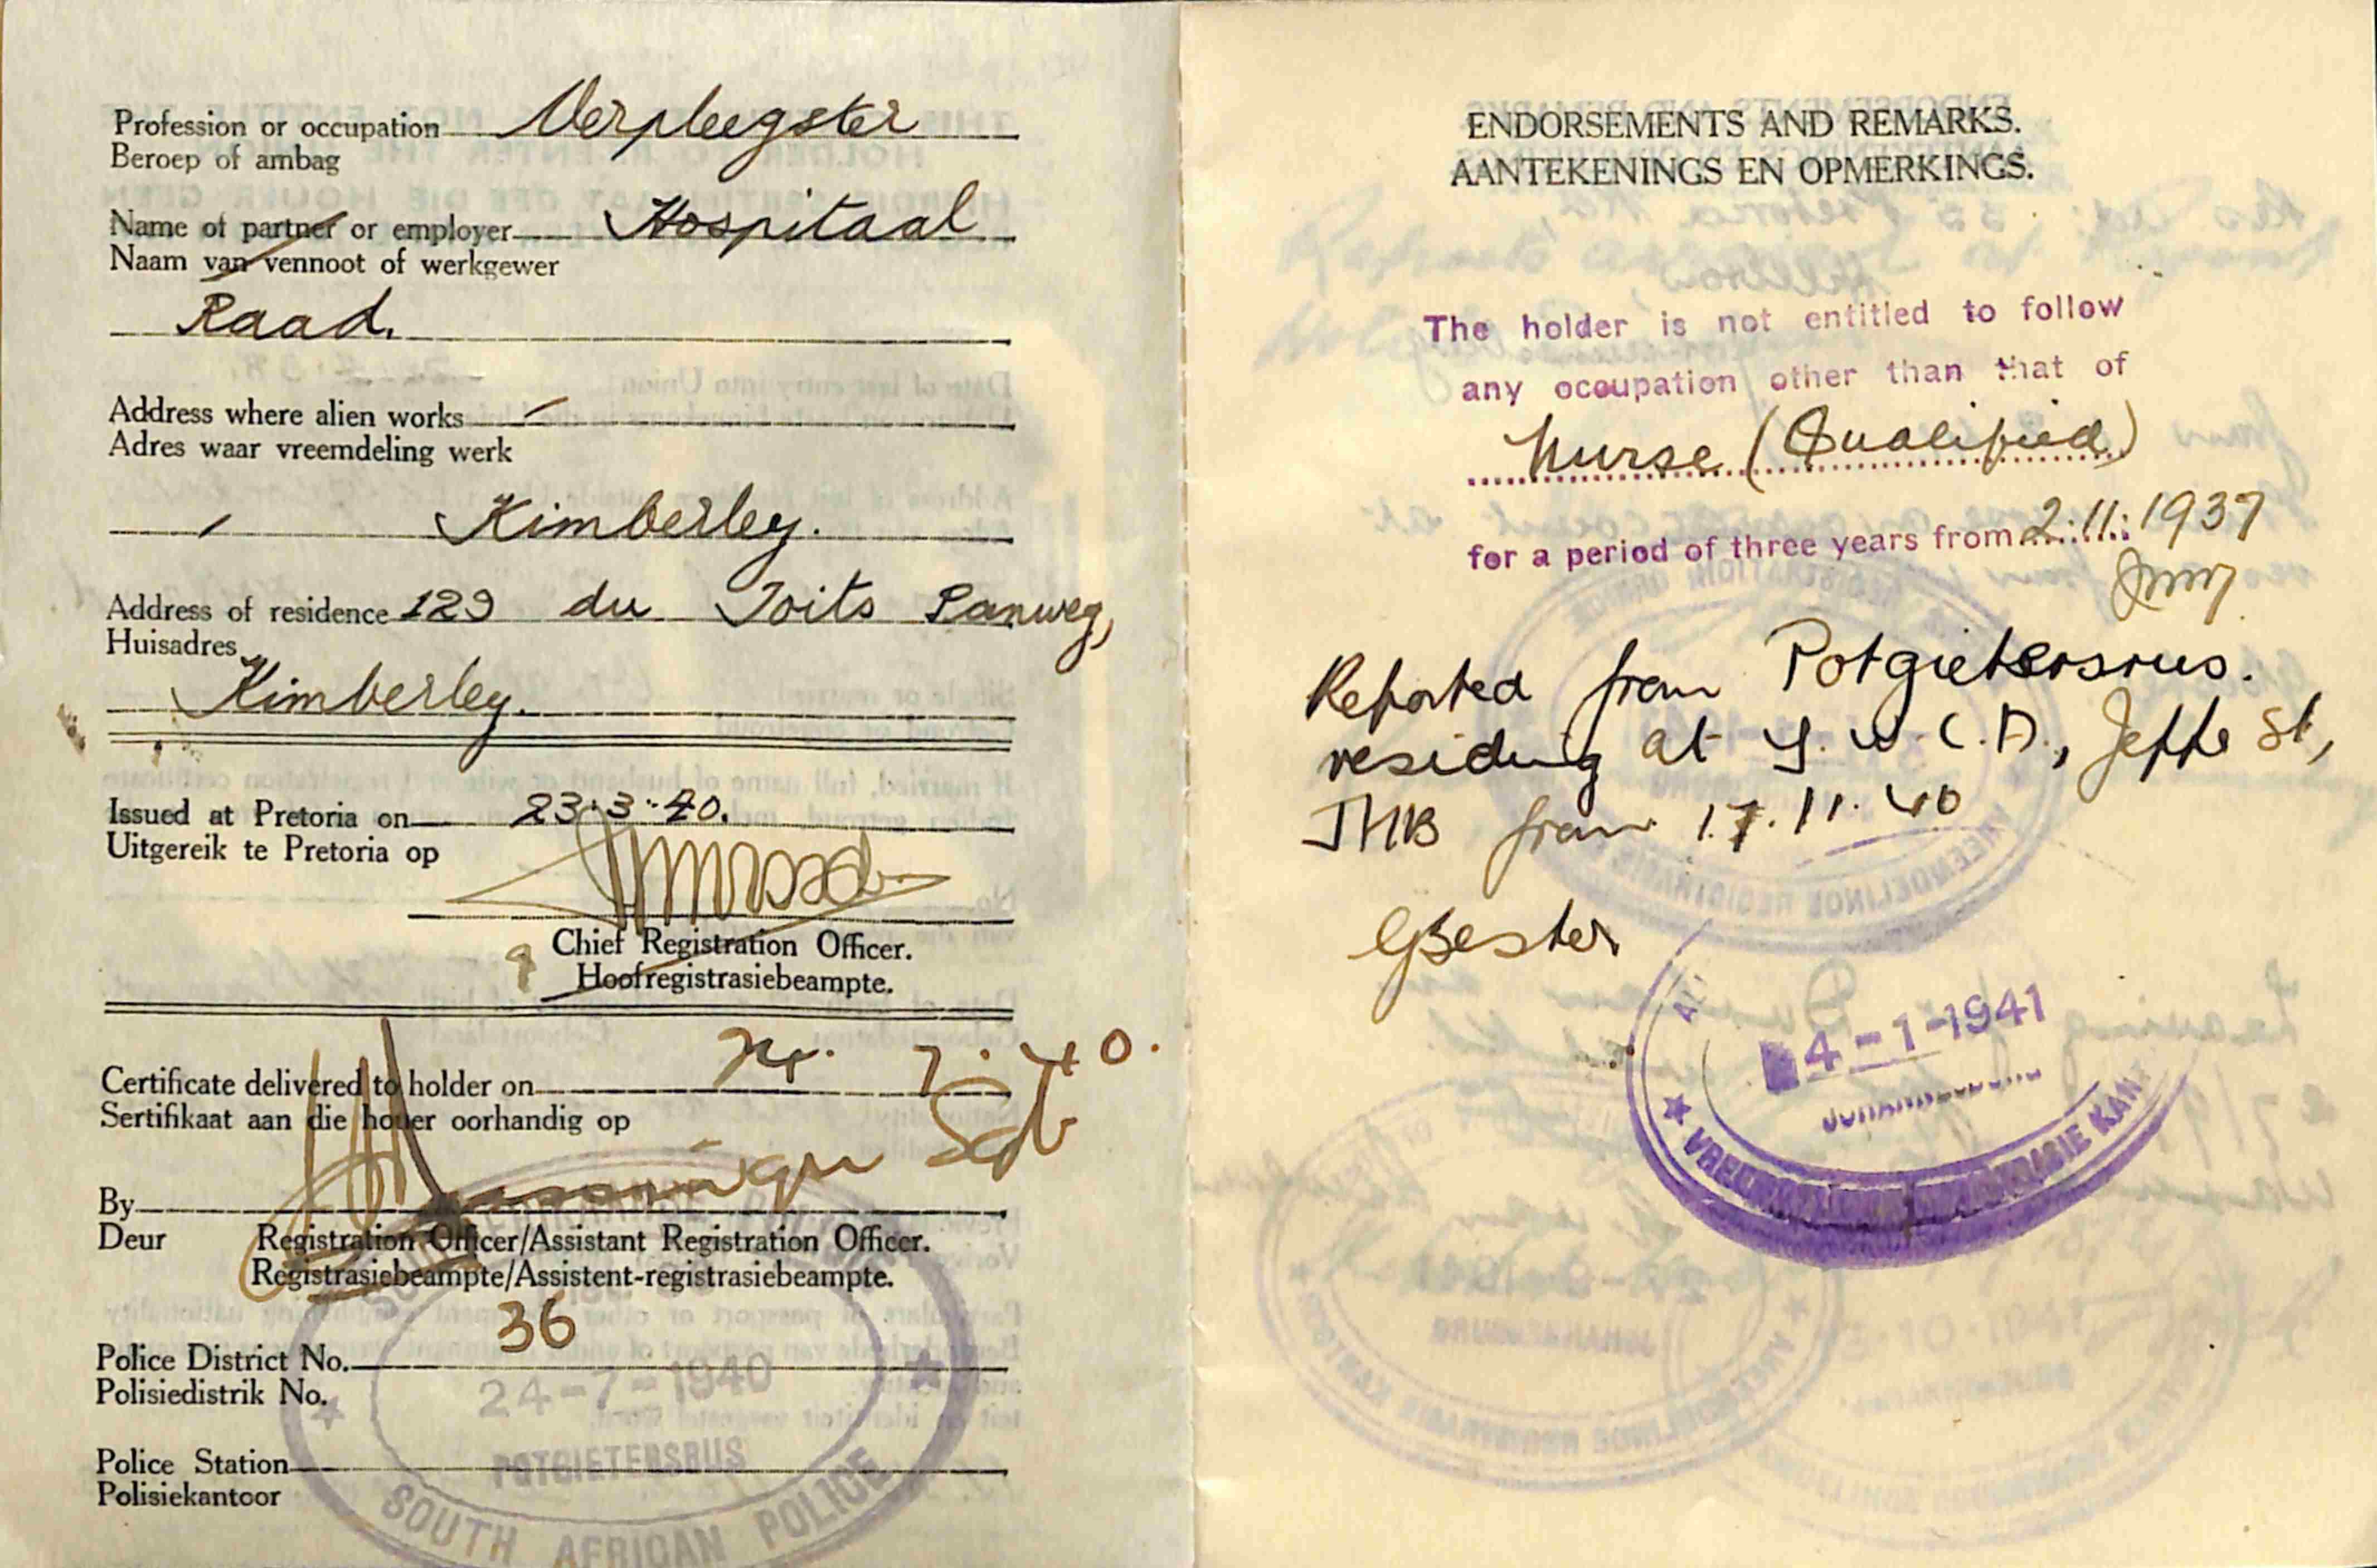 Profession or occupation Verpleegster
Beroep of ambag
Name of partner or employer Hospitaal
Naam van vennoot of werkgewer
Raad.
Address where alien works
Adres waar vreemdeling werk
Kimberley.
Address of residence 129 du Toits Panweg,
Huisadres
Kimberley.
Issued at Pretoria on 23:3:40.
Uitgereik te Pretoria op
Chief Registration Officer.
Hoofregistrasiebeampte.
Certificate delivered to holder on 24. 7. 40.
Sertifikaat aan die houer oorhandig op
Sgt
By
Deur
Registration Officer/Assistant Registration Officer.
Registrasiebeampte/Assistent-registrasiebeampte.
36
Police District No.
Polisiedistrik No.
24-7-1940
POTGIETERSRUS
Police Station
Polisiekantoor
SOUTH AFRICAN POLICE
ENDORSEMENTS AND REMARKS.
AANTEKENINGS EN OPMERKINGS.
The holder is not entitled to follow
any occupation other than that of
Nurse (Qualified)
for a period of three years from 2:11:1937
Reported from Potgietersrus.
residing at Y.W.C.A., Jeppe St,
JHB from 17.11.40
GBester
4-1-1941
JOHANNESBURG
VREEMDELINGE REGISTRASIE KAN